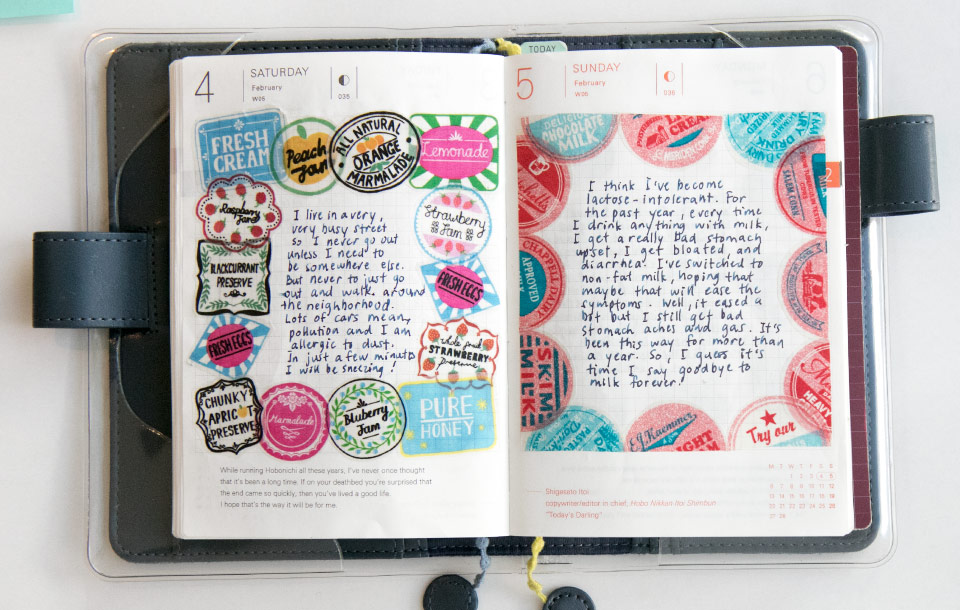 TODAY
4
SATURDAY
February
W05
035
FRESH
CREAM
Peach
Jam
ALL NATURAL
ORANGE
MARMALADE
Lemonade
Raspberry
Jam
Strawberry
Jam
BLACKCURRANT
PRESERVE
FRESH EGGS
FRESH EGGS
Whole fruit
STRAWBERRY
Preserve
I live in a very,
very busy street
so I never go out
unless I need to
be somewhere else.
But never to just go
out and walk around
the neighborhood.
Lots of cars mean,
pollution and I am
allergic to dust.
In just a few minutes
I will be sneezing!
CHUNKY
APRICOT
PRESERVE
Marmalade
Bluberry
Jam
PURE
HONEY
While running Hobonichi all these years, I've never once thought
that it's been a long time. If on your deathbed you're surprised that
the end came so quickly, then you've lived a good life.
I hope that's the way it will be for me.
5
SUNDAY
February
W05
036
DELICIOUS
CHOCOLATE
MILK
CREAM
MERIDEN CONN
DAIRY DRINK
SALEM, CONN
2
CHAPPELL DAIRY
APPROVED
SKIM
MILK
HEAVY
E.J. Kaemmer
Try our
I think I've become
lactose-intolerant. For
the past year, every time
I drink anything with milk,
I get a really bad stomach
upset, I get bloated, and
diarrhea! I've switched to
non-fat milk, hoping that
maybe that will ease the
symptoms. Well, it eased a
bit but I still get bad
stomach aches and gas. It's
been this way for more than
a year. So, I guess it's
time I say goodbye to
milk forever!
Shigesato Itoi
copywriter/editor in chief, Hobo Nikkan Itoi Shimbun
"Today's Darling"
M T W T F S S
1 2 3 4 5
6 7 8 9 10 11 12
13 14 15 16 17 18 19
20 21 22 23 24 25 26
27 28